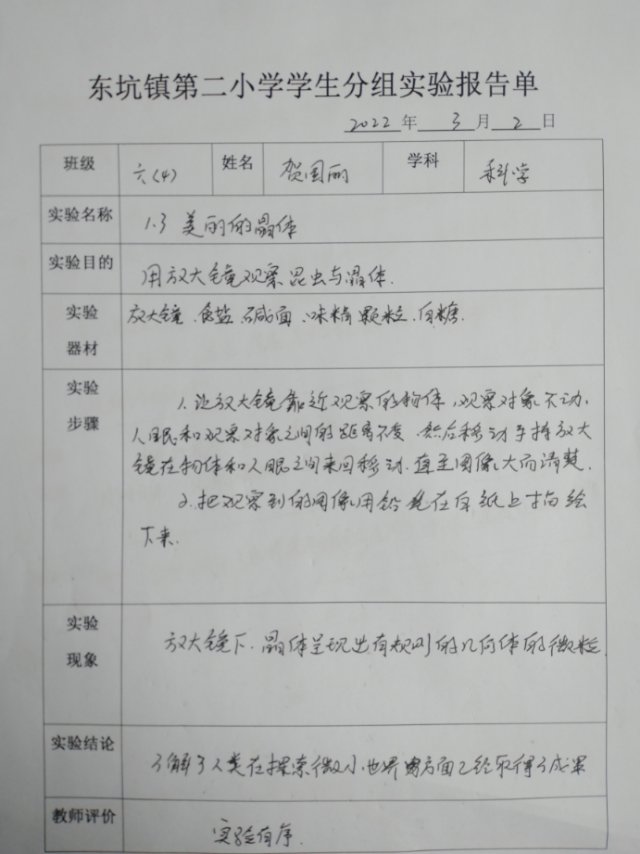 东坑镇第二小学学生分组实验报告单
2022 年 3 月 2 日
班级 六(4) 姓名 贺国丽 学科 科学
实验名称 1.3 美丽的晶体
实验目的 用放大镜观察昆虫与晶体.
实验器材 放大镜、食盐、碱面、味精颗粒、白糖.
实验步骤
1. 让放大镜靠近观察的物体,观察对象不动,
人眼和观察对象之间的距离不变,然后移动手持放大
镜在物体和人眼之间来回移动.直至图像大而清楚.
2. 把观察到的图像用铅笔在白纸上描绘
下来.
实验现象 放大镜下.晶体呈现出有规则的几何体的微粒.
实验结论 了解了人类在探索微小世界 方面已经取得了成果
教师评价 实验有序.